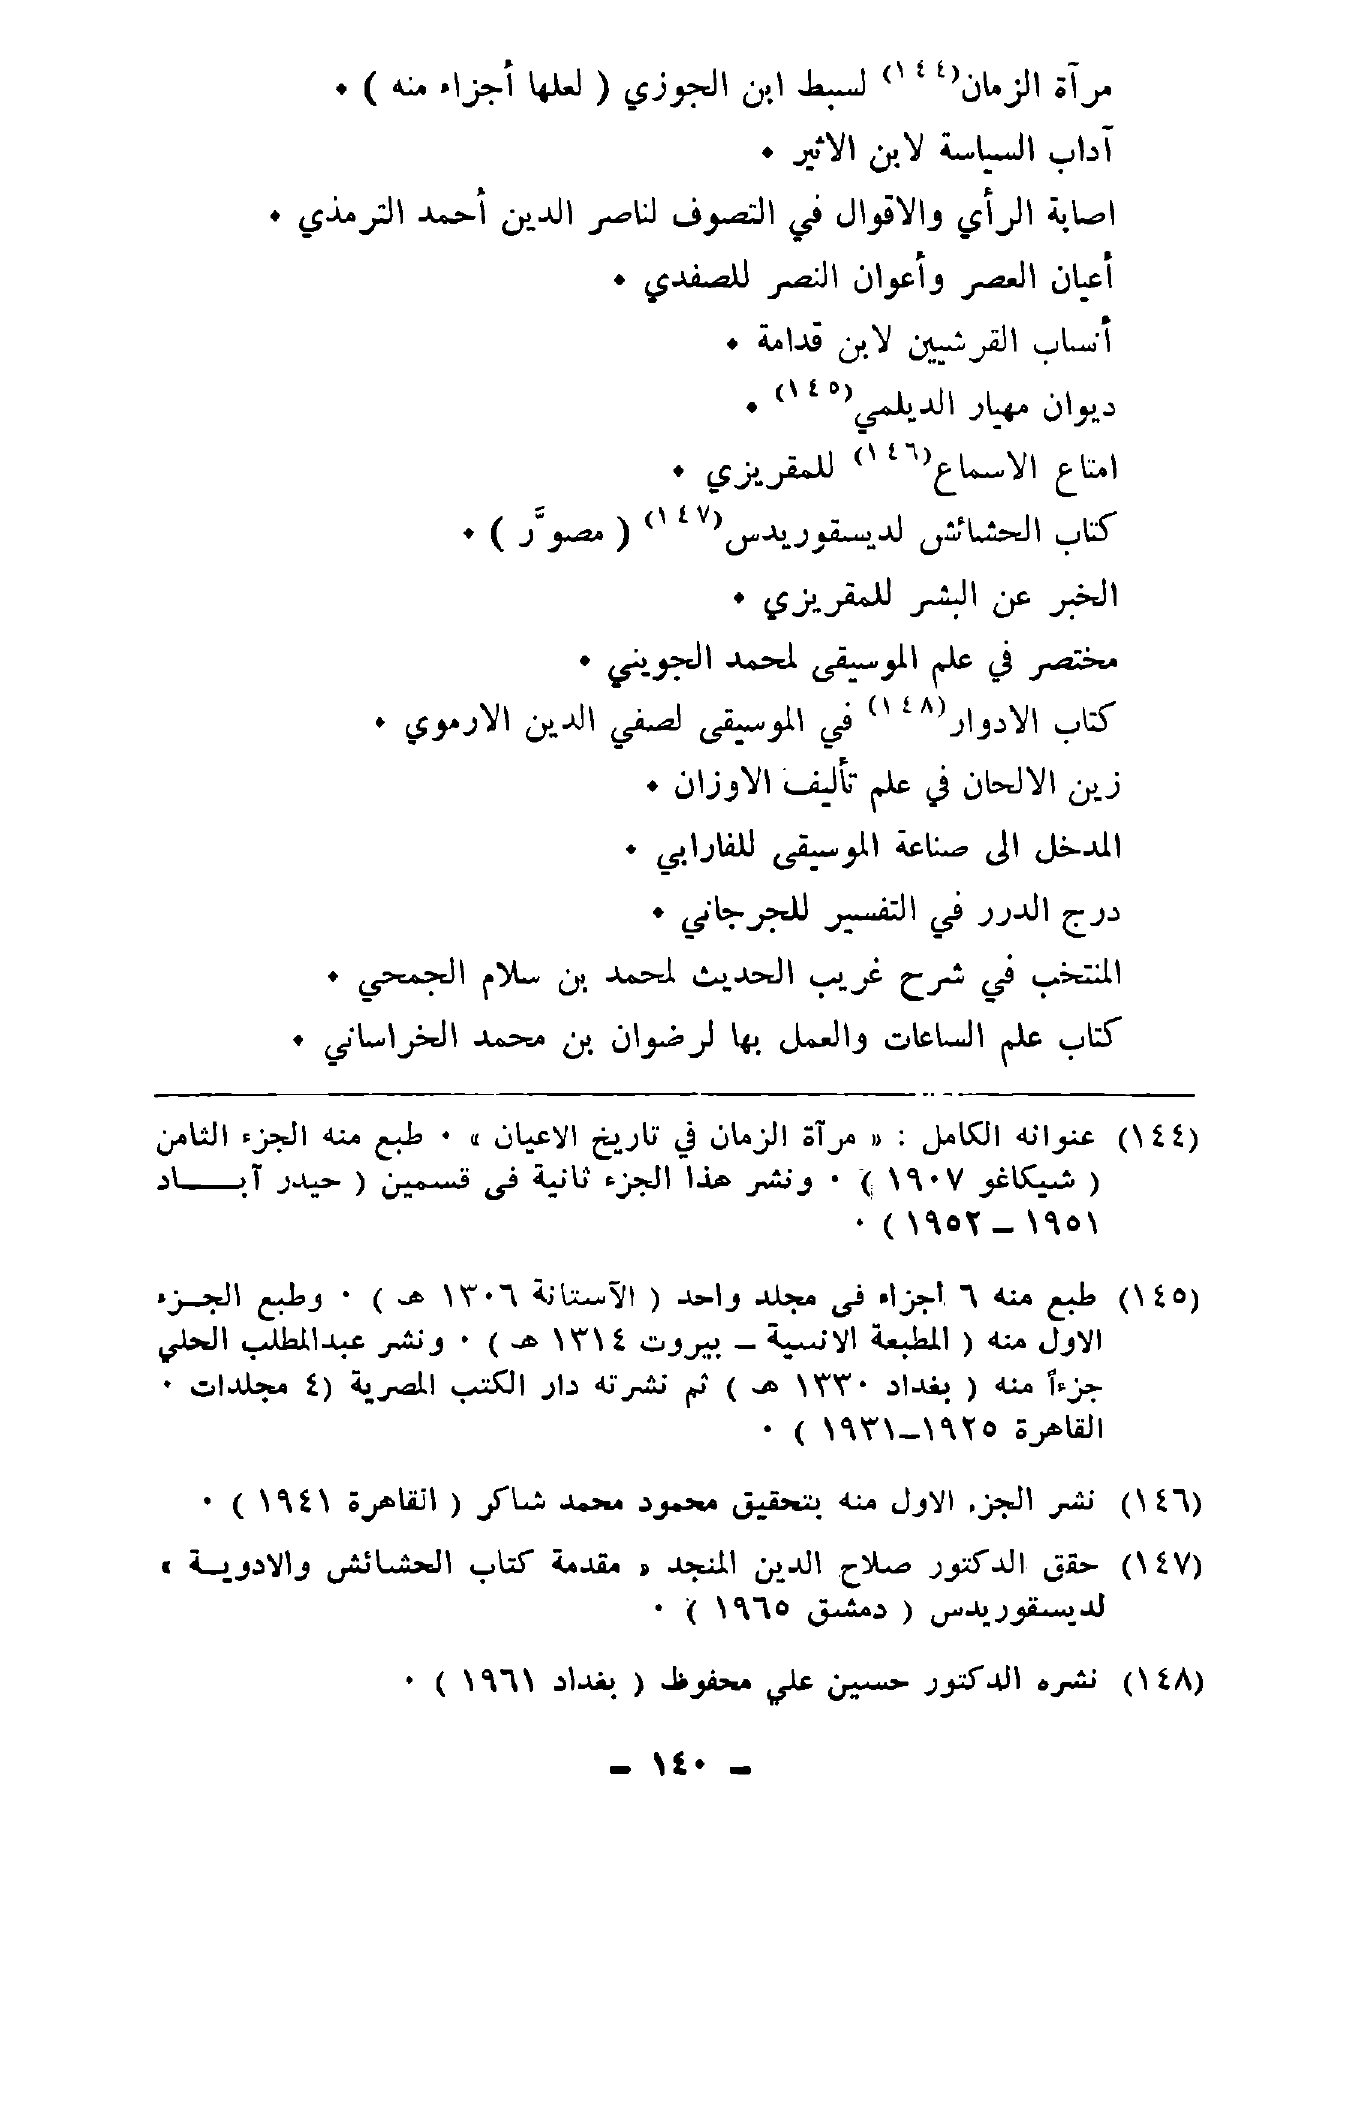 مرآة الزمان(١٤٤) لسبط ابن الجوزي ( لعلها أجزاء منه ) ٠
آداب السياسة لابن الاثير ٠
اصابة الرأي والاقوال في التصوف لناصر الدين أحمد الترمذي ٠
أعيان العصر وأعوان النصر للصفدي ٠
أنساب القرشيين لابن قدامة ٠
ديوان مهيار الديلمي(١٤٥) ٠
امتاع الاسماع(١٤٦) للمقريزي ٠
كتاب الحشائش لديسقوريدس(١٤٧) ( مصوَّر ) ٠
الخبر عن البشر للمقريزي ٠
مختصر في علم الموسيقى لمحمد الجويني ٠
كتاب الادوار(١٤٨) في الموسيقى لصفي الدين الارموي ٠
زين الالحان في علم تأليف الاوزان ٠
المدخل الى صناعة الموسيقى للفارابي ٠
درج الدرر في التفسير للجرجاني ٠
المنتخب في شرح غريب الحديث لمحمد بن سلام الجمحي ٠
كتاب علم الساعات والعمل بها لرضوان بن محمد الخراساني ٠
(١٤٤) عنوانه الكامل : « مرآة الزمان في تاريخ الاعيان » ٠ طبع منه الجزء الثامن
( شيكاغو ١٩٠٧ ) ٠ ونشر هذا الجزء ثانية فى قسمين ( حيدر آبـــــاد
١٩٥١ ـ ١٩٥٢ ) ٠
(١٤٥) طبع منه ٦ أجزاء فى مجلد واحد ( الآستانة ١٣٠٦ هـ ) ٠ وطبع الجـزء
الاول منه ( المطبعة الانسية ـ بيروت ١٣١٤ هـ ) ٠ ونشر عبدالمطلب الحلي
جزءاً منه ( بغداد ١٣٣٠ هـ ) ثم نشرته دار الكتب المصرية (٤ مجلدات ٠
القاهرة ١٩٢٥ـ١٩٣١ ) ٠
(١٤٦) نشر الجزء الاول منه بتحقيق محمود محمد شاكر ( القاهرة ١٩٤١ ) ٠
(١٤٧) حقق الدكتور صلاح الدين المنجد « مقدمة كتاب الحشائش والادويـة »
لديسقوريدس ( دمشق ١٩٦٥ ) ٠
(١٤٨) نشره الدكتور حسين علي محفوظ ( بغداد ١٩٦١ ) ٠
ـ ١٤٠ ـ